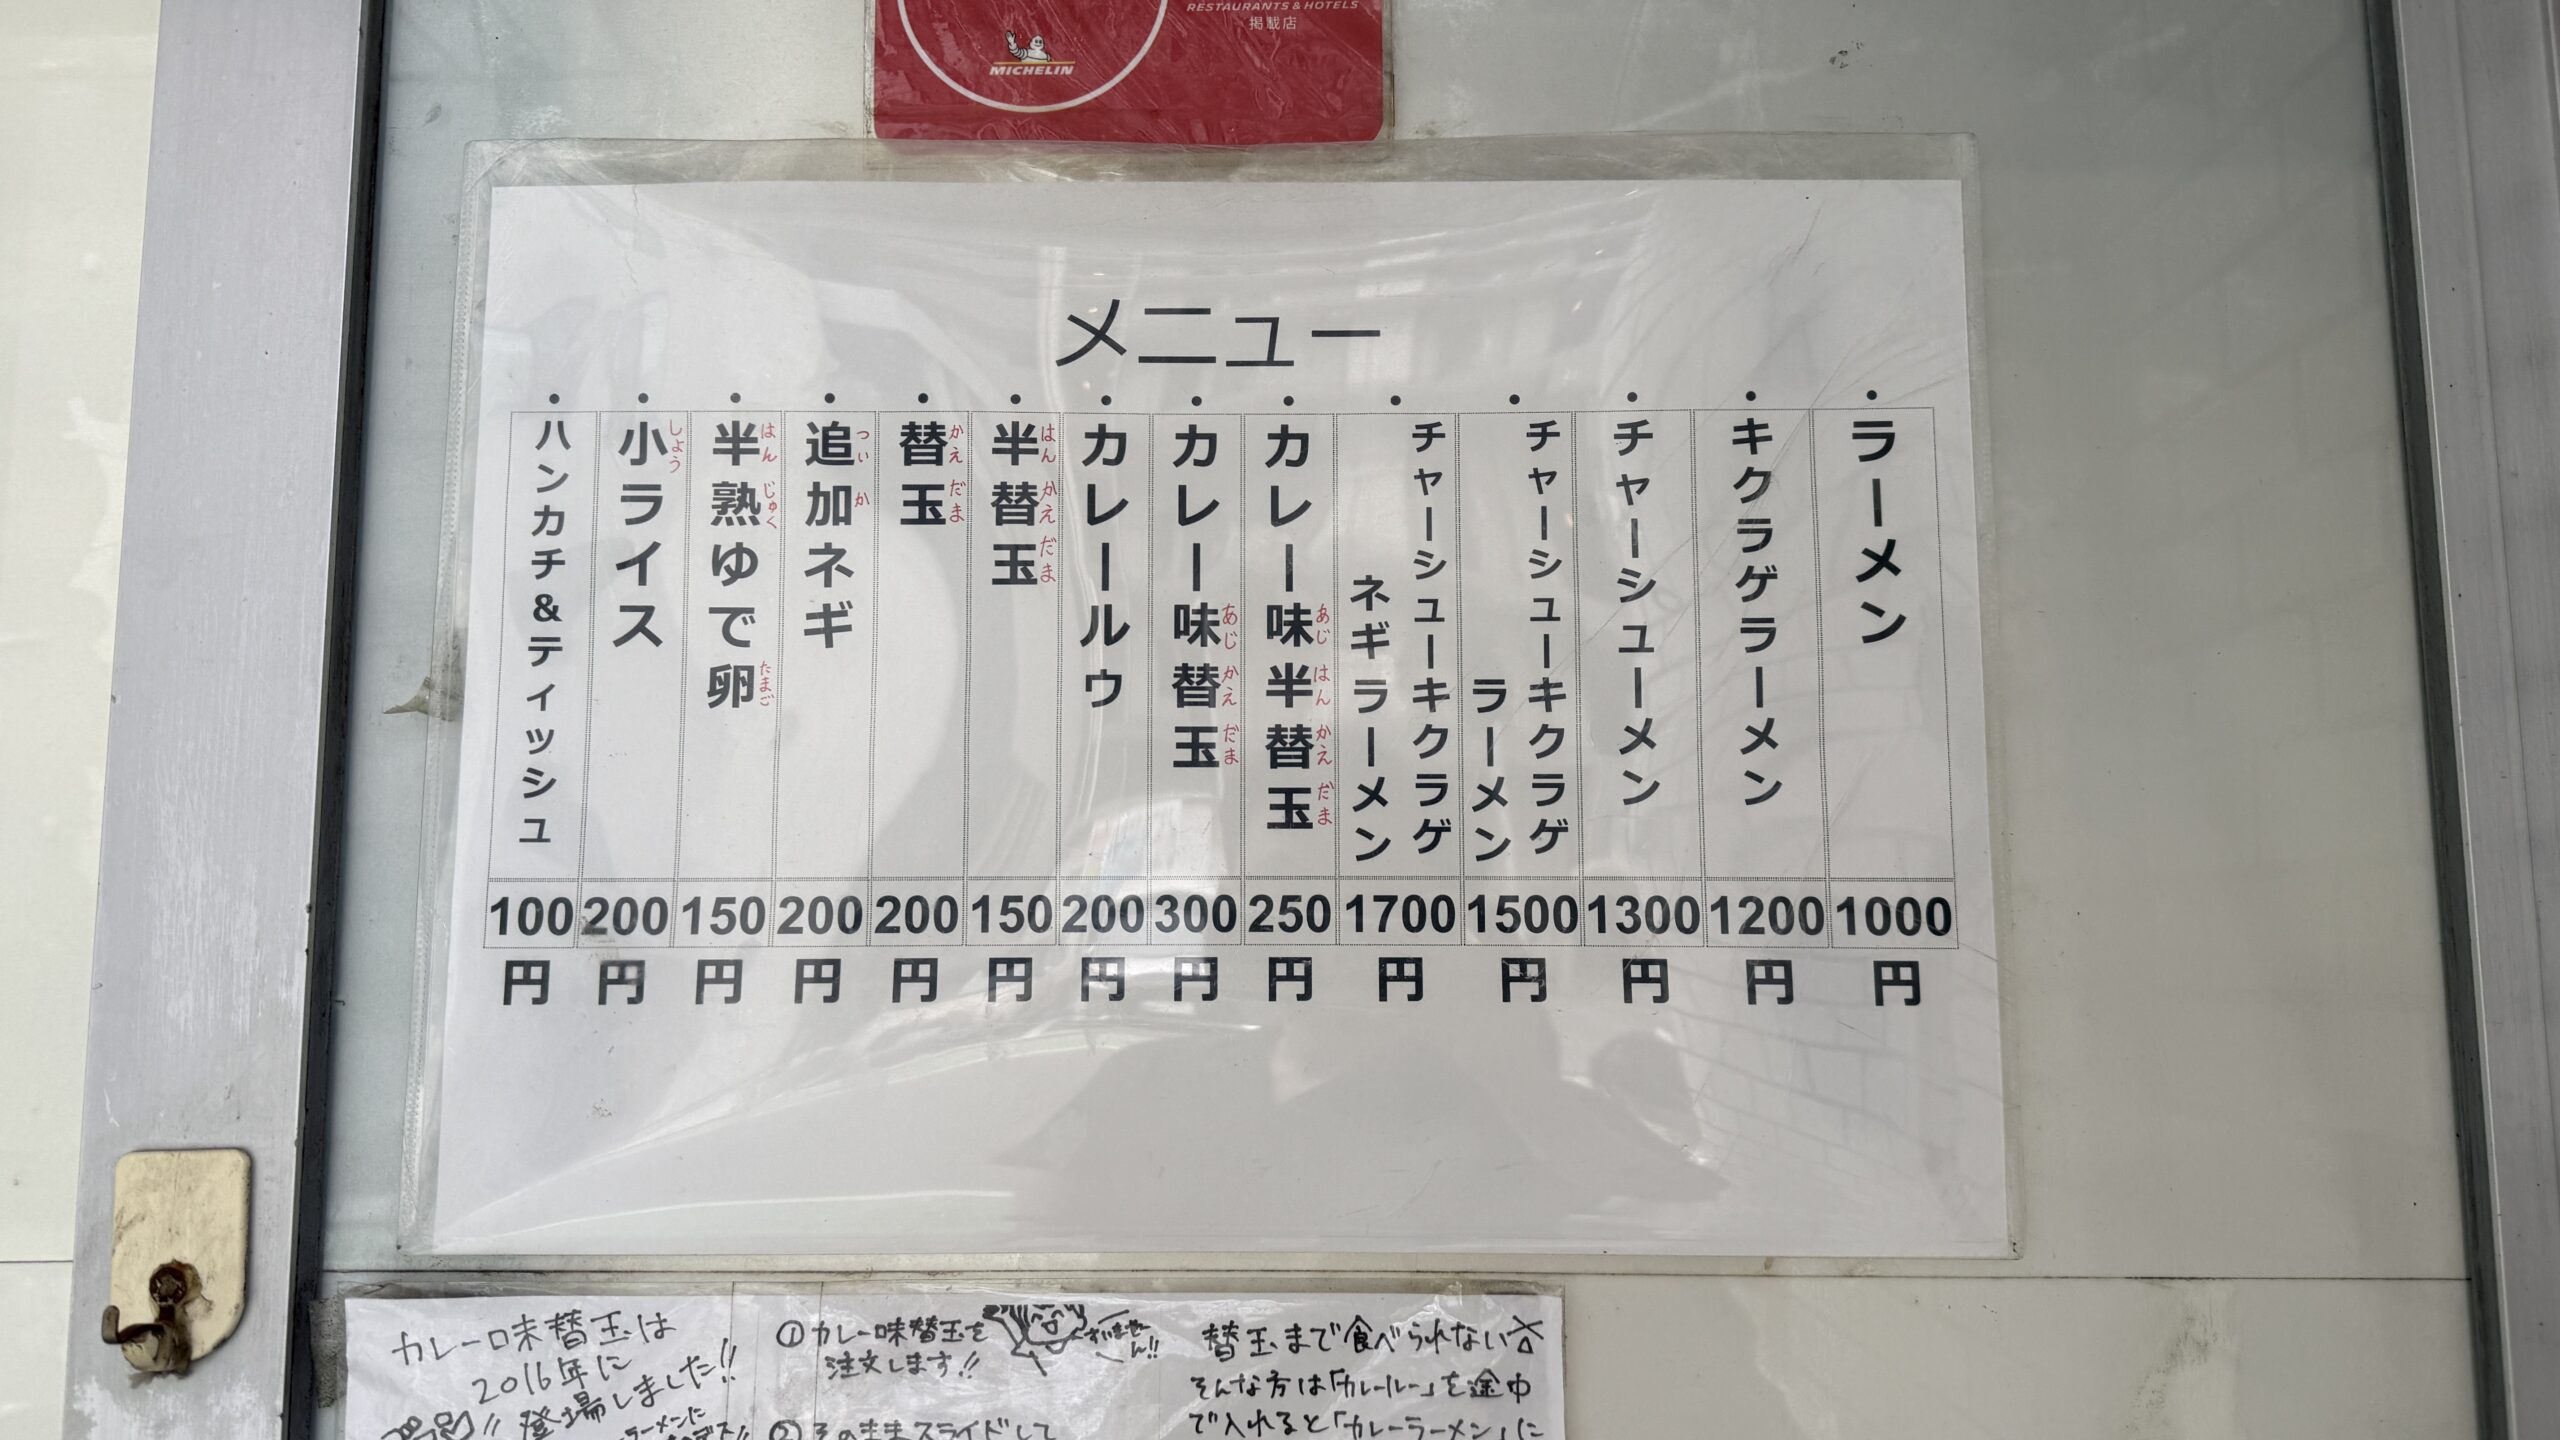 RESTAURANTS & HOTELS
掲載店
MICHELIN
メニュー
・ラーメン 1000円
・キクラゲラーメン 1200円
・チャーシューメン 1300円
・チャーシューキクラゲ
ラーメン 1500円
・チャーシューキクラゲ
ネギラーメン 1700円
・カレー味半替玉 250円
あじ はん かえ だま
・カレー味替玉 300円
あじ かえ だま
・カレールゥ 200円
・半替玉 150円
はん かえ だま
・替玉 200円
かえ だま
・追加ネギ 200円
つい か
・半熟ゆで卵 150円
はん じゅく たまご
・小ライス 200円
しょう
・ハンカチ&ティッシュ 100円
カレー味替玉は
2016年に
登場しました!!
ラーメンに
①カレー味替玉を
注文します!!
すいませーん!!
②そのままスライドして
替玉まで食べられない
そんな方は「カレールー」を途中
で入れると「カレーラーメン」に